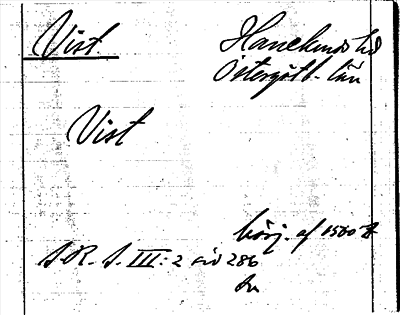 Vist. Hanekinds hd
Östergötl. län
Vist
börj. af 1560 t.
S. R. S. III: 2 sid 286